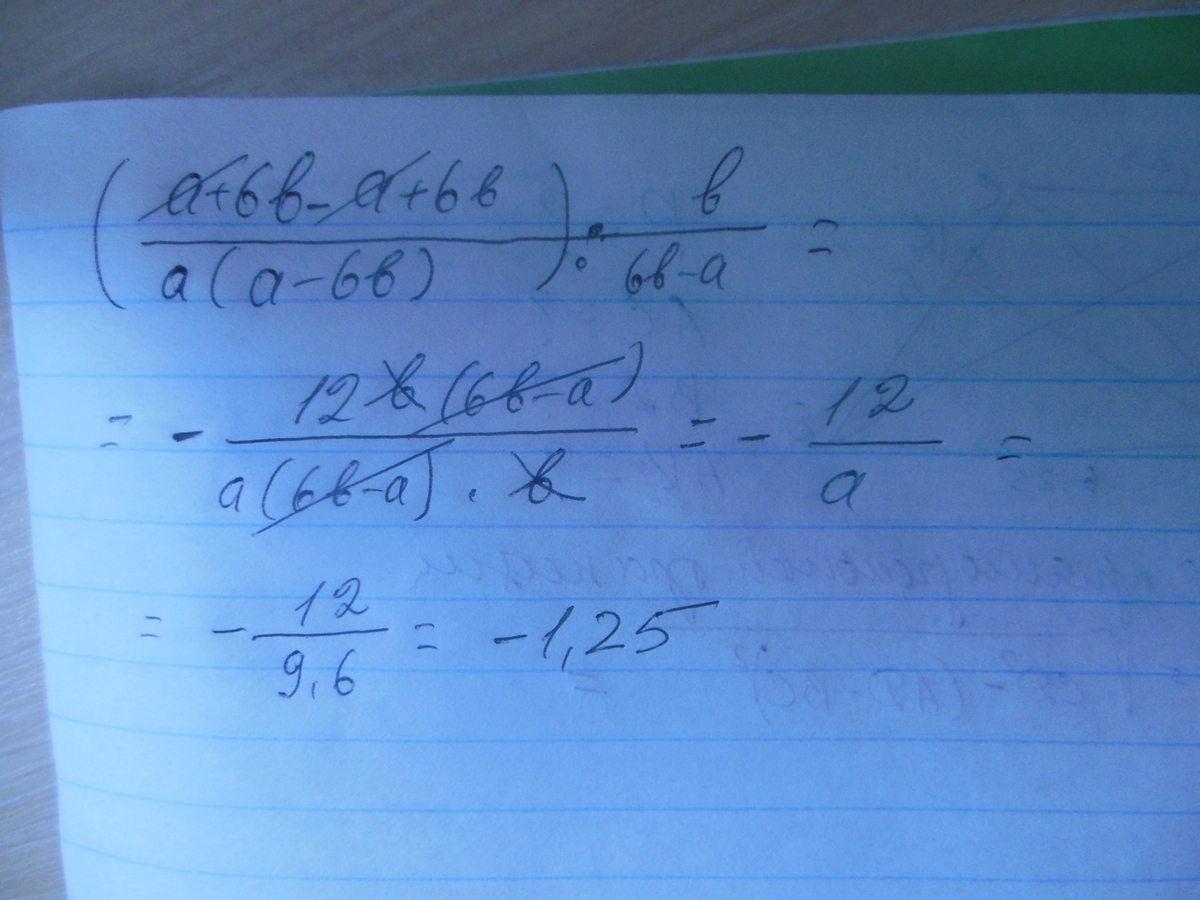 ( (a+6b-a+6b) / (a(a-6b)) ) : b / (6b-a) =
= - 12b(6b-a) / (a(6b-a) · b) = - 12 / a =
= - 12 / 9,6 = -1,25